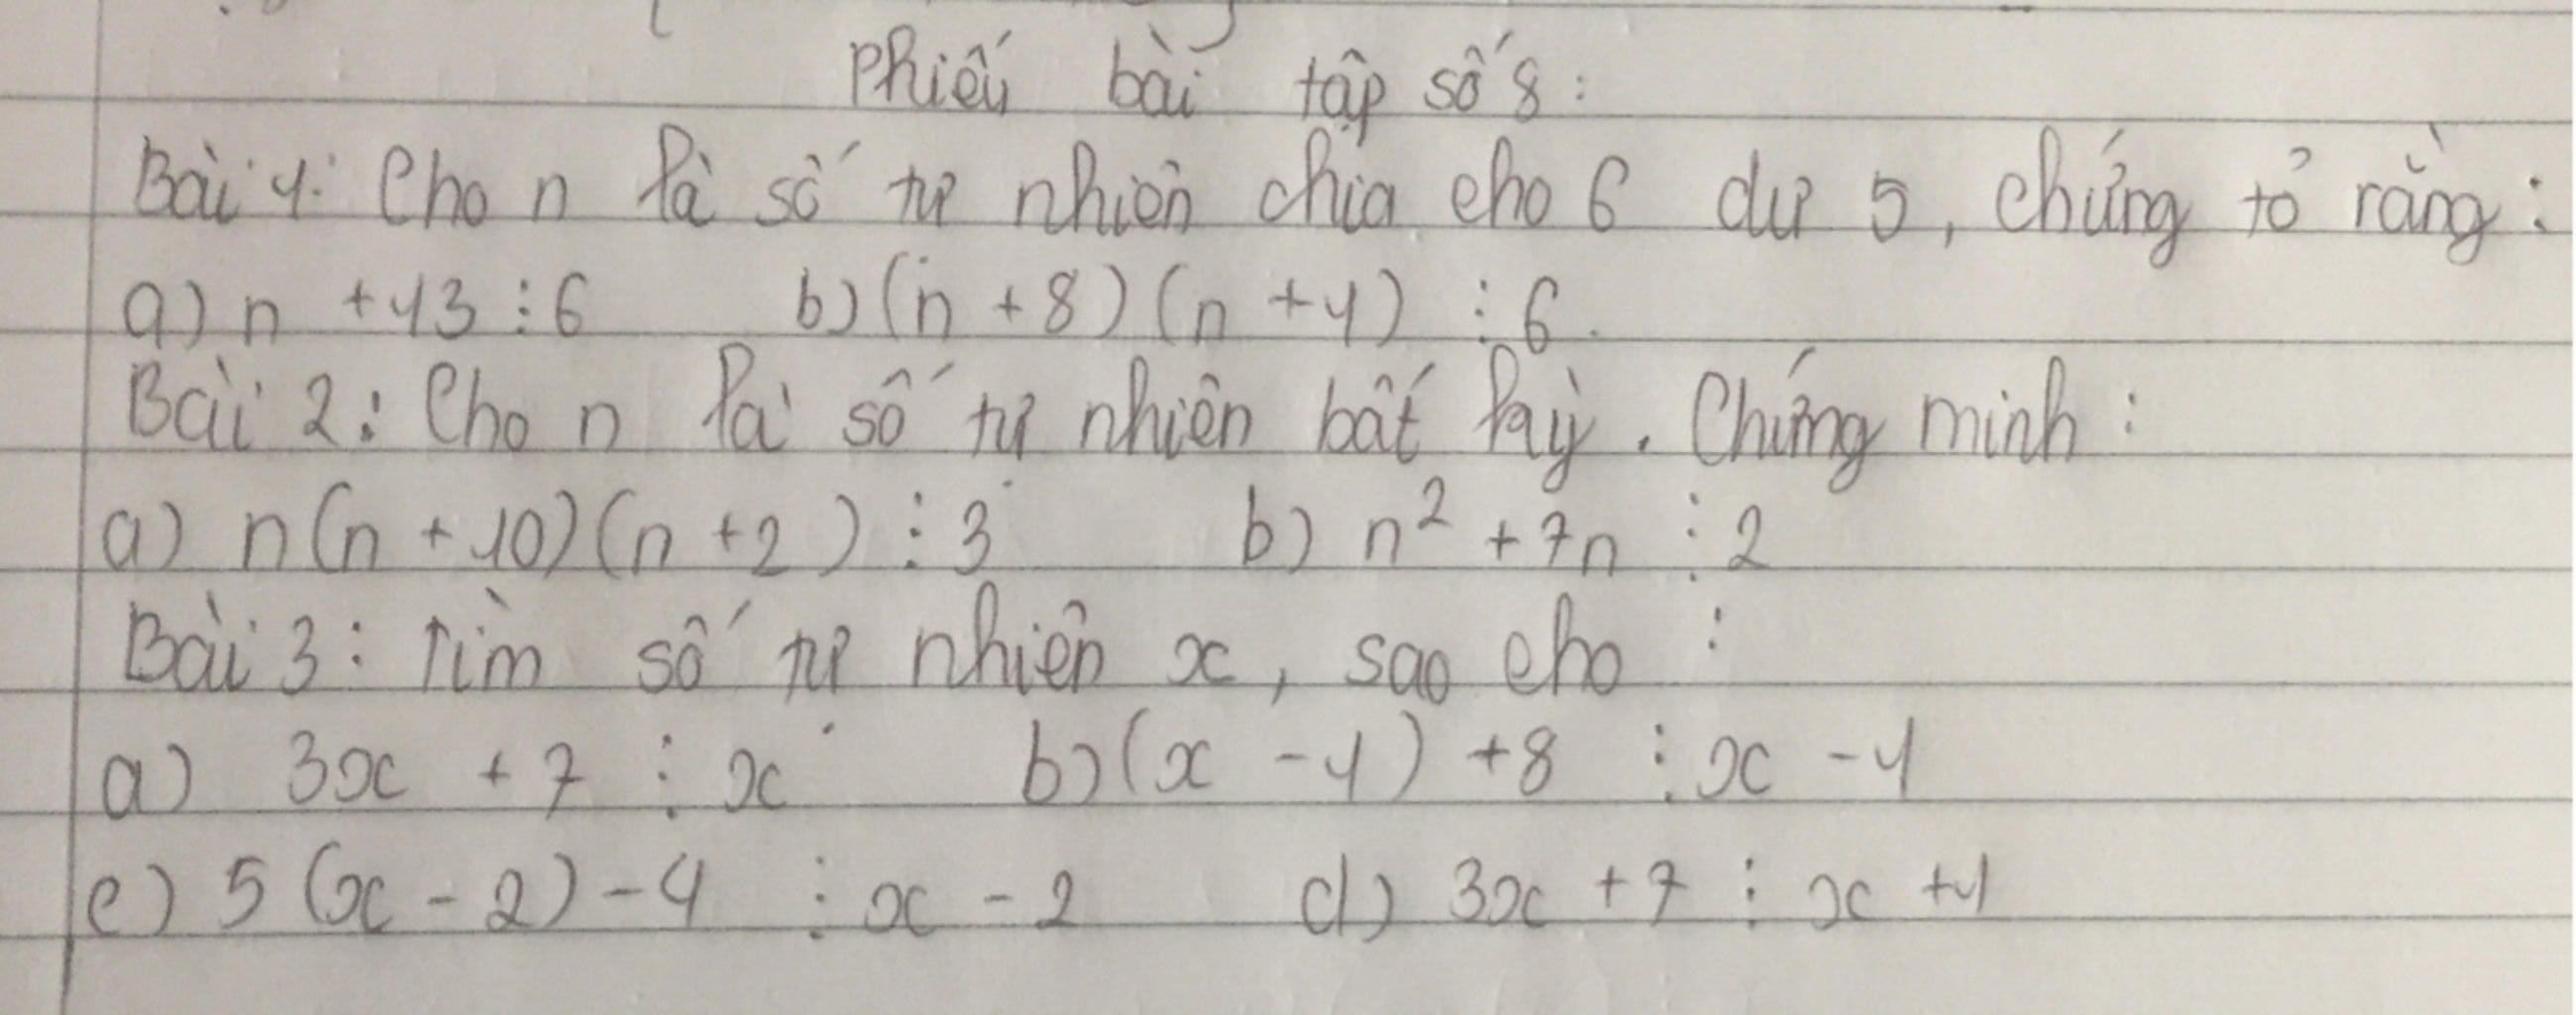 Phiếu bài tập số 8:
Bài 1: Cho n là số tự nhiên chia cho 6 dư 5, chứng tỏ rằng:
a) n + 13 ⋮ 6 b) (n + 8) (n + 1) ⋮ 6.
Bài 2: Cho n là số tự nhiên bất kỳ. Chứng minh:
a) n(n + 10)(n + 2) ⋮ 3 b) n² + 7n ⋮ 2
Bài 3: Tìm số tự nhiên x, sao cho:
a) 3x + 7 ⋮ x b) (x - 1) + 8 ⋮ x - 1
c) 5 (x - 2) - 4 ⋮ x - 2 d) 3x + 7 ⋮ x + 1